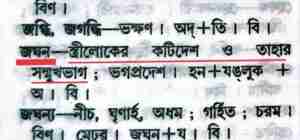 বিণ।
জগ্ধি, জগদ্ধি—ভক্ষণ। অদ্+তি। বি।
জঘন—স্ত্রীলোকের কটিদেশ ও তাহার
সম্মুখভাগ; ভগপ্রদেশ। হন+যঙলুক +
অ। বি।
জঘন্য—নীচ, ঘৃণার্হ, অধম; গর্হিত; চরম।
বিণ। মেঢ্র। জঘন+য। বি।